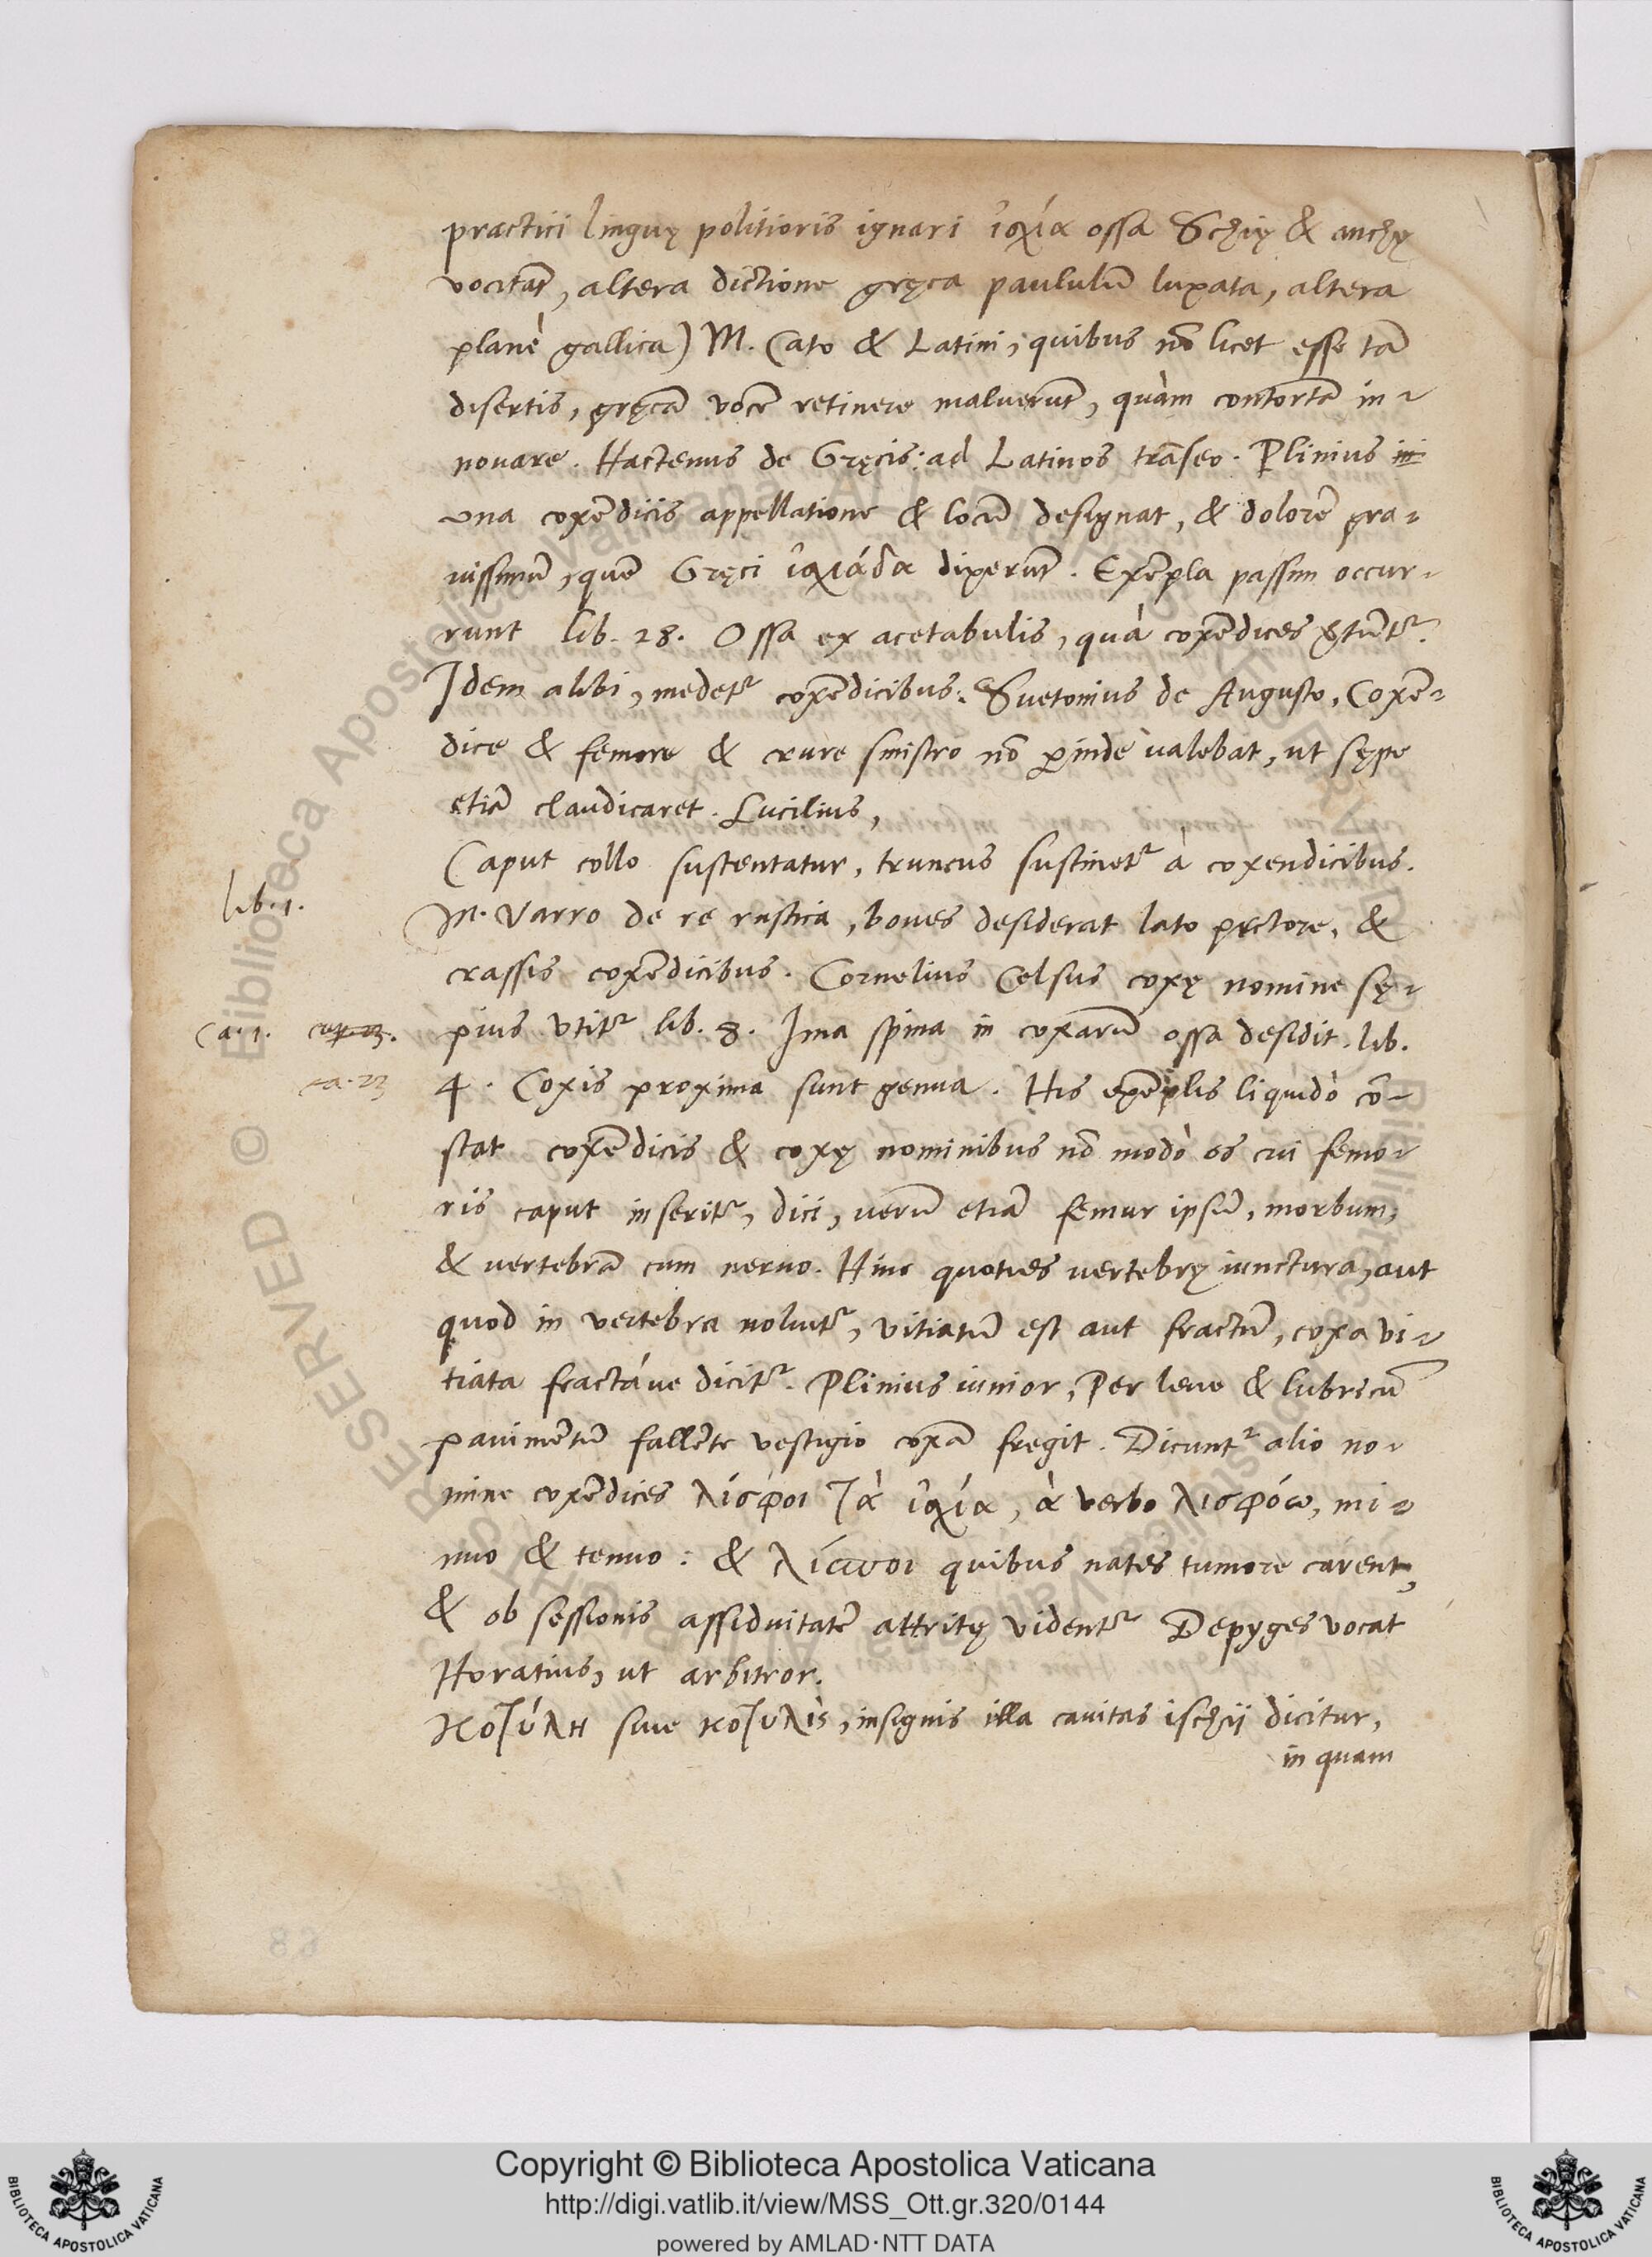 practici linguę politioris ignari ἰσχία ossa Schię & anchę
vocitāt, altera dictione gręca paululū luxata, altera
planè gallica) M. Cato & Latini, quibus nō licet esse tā
disertis, gręcā vocē retinere maluerūt, quàm contortā in-
nouare. Hactenus de Gręcis: ad Latinos trāseo. Plinius in
una coxēdicis appellatione & locū designat, & dolorē gra-
uissimū, quē Gręci ἰσχιάδα dixerūt. Exēpla passim occur-
runt lib. 28. Ossa ex acetabulis, quà coxēdices
Idem alibi, medetr coxēdicibus. Suetonius de Augusto, Coxē-
dice & femore & crure sinistro nō perinde valebat, ut sępe
etiā claudicaret. Lucilius,
Caput collo sustentatur, truncus sustinetr à coxendicibus.
lib. 1.
M. Varro de re rustica, boues desiderat lato pectore, &
crassis coxēdicibus. Cornelius Celsus coxę nomine sę-
ca. 1. cap. 23.
pius utitr lib. 8. Ima spina in coxarū ossa desidit. lib.
ca. 23
4. Coxis proxima sunt genua. His exēplis liquidò cō-
stat coxēdicis & coxę nominibus nō modò os cui femo-
ris caput inseritr, dici, verū etiā femur ipsū, morbum,
& vertebrā cum neruo. Hinc quoties vertebrę iunctura, aut
quod in vertebra voluitr, vitiatū est aut fractū, coxa vi-
tiata fractáue dicitr. Plinius iunior, Per leue & lubricū
pauimētū fallēte vestigio coxā fregit. Dicuntr alio no-
mine coxēdices λίσφοι τὰ ἰσχία, à verbo λισφόω, mi-
nuo & tenuo: & λίσποι quibus nates tumore carent,
& ob sessionis assiduitatē attritę videntr Depyges vocat
Horatius, ut arbitror.
κοτύλη siue κοτυλὶς, insignis illa cauitas ischij dicitur,
in quam
Copyright © Biblioteca Apostolica Vaticana
http://digi.vatlib.it/view/MSS_Ott.gr.320/0144
powered by AMLAD·NTT DATA
BIBLIOTECA APOSTOLICA VATICANA
BIBLIOTECA APOSTOLICA VATICANA